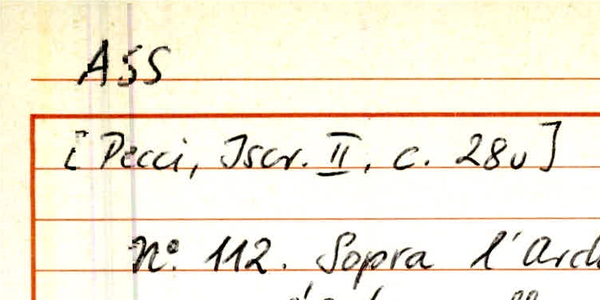 ASS
[Pecci, Iscr. II, c. 28v]
N° 112. Sopra l'Arch